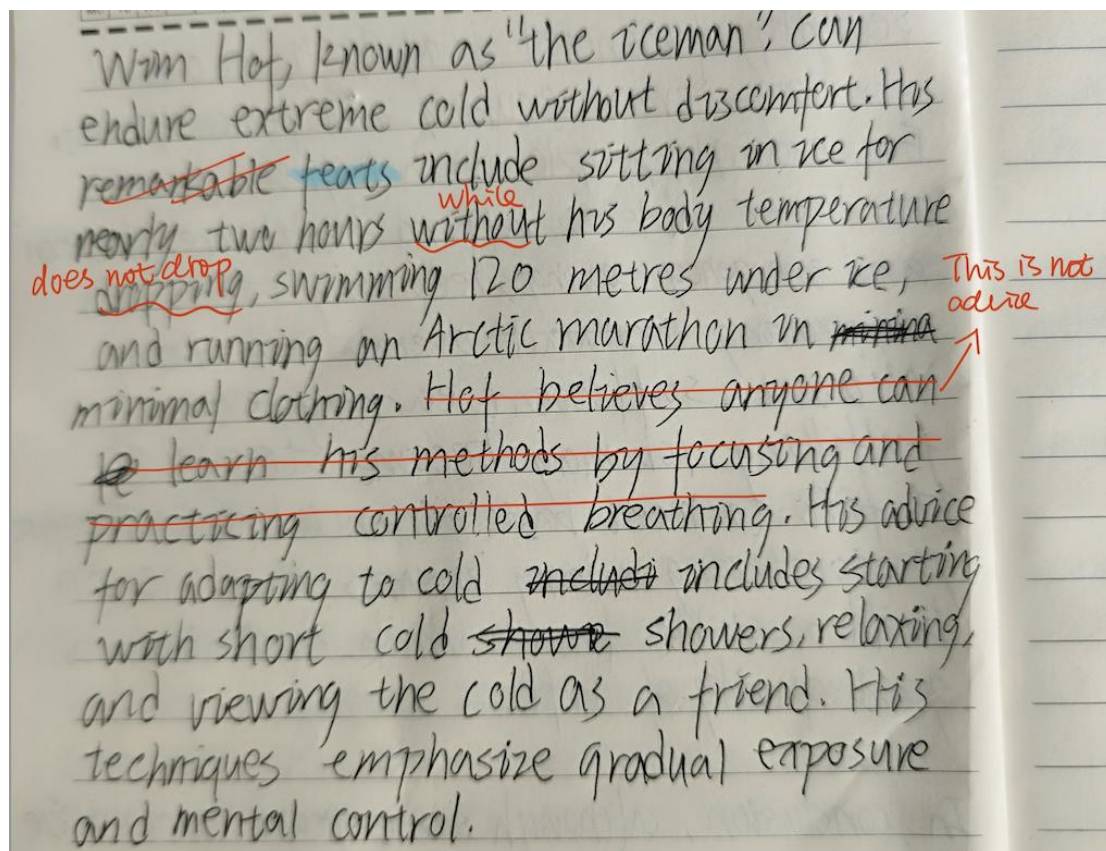 Wim Hof, known as "the iceman", can
endure extreme cold without discomfort. His
remarkable feats include sitting in ice for
while
nearly two hours without his body temperature
does not drop
dropping, swimming 120 metres under ice,
This is not
advice
and running an Arctic marathon in
minimal clothing. Hof believes anyone can
le learn his methods by focusing and
practicing controlled breathing. His advice
for adapting to cold includi includes starting
with short cold showe showers, relaxing,
and viewing the cold as a friend. His
techniques emphasize gradual exposure
and mental control.